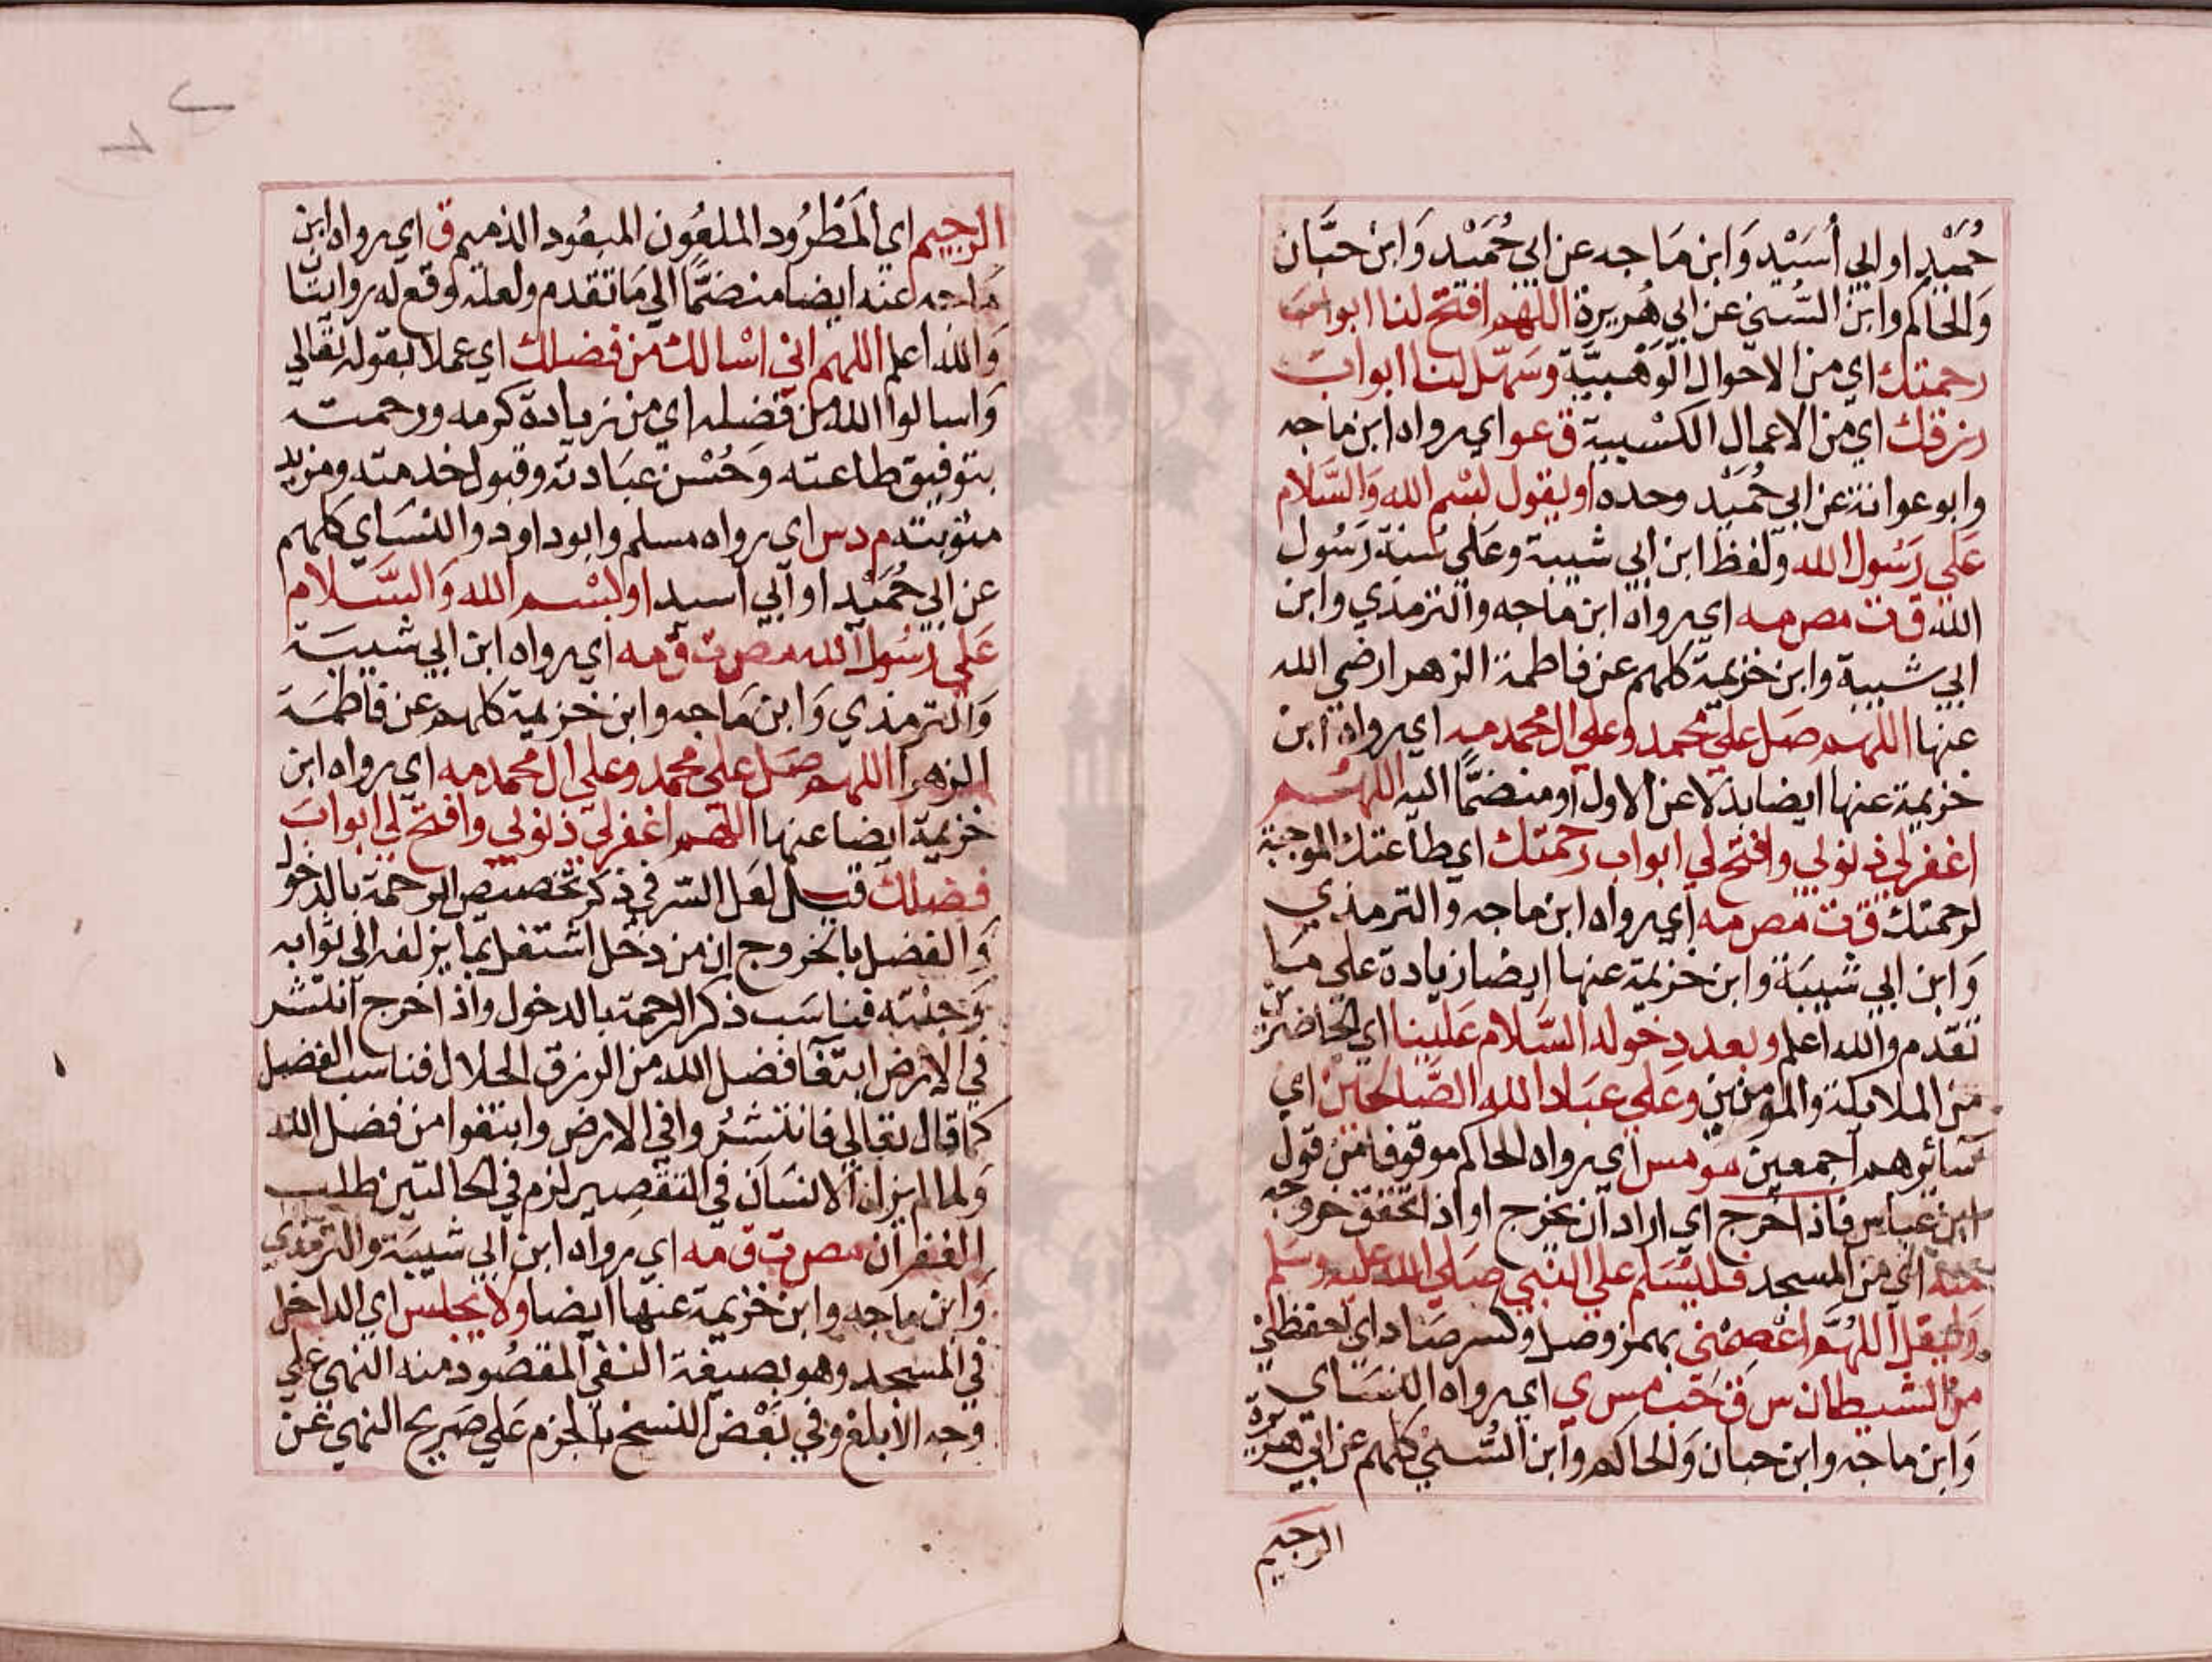 حُمَيْدٍ او ابي أُسَيْد وَابن مَاجه عن ابي حُمَيْد وَابن حبَّان
وَالحاكم وابن السُّني عن ابي هُريرة اللهم افتح لنا ابواب
رحمتك اي من الاحوال الوَهْبيَّة وسَهّل لنا ابواب
رزقك اي من الاعمال الكسْبية ق عو اي رواه ابن ماجه
وابو عوانة عن ابي حُمَيْد وحده او يقول بسْم الله وَالسَّلام
عَلى رَسُول الله ولفظ ابن ابي شيبة وعَلى سُنة رَسُول
الله ق ت مص مه اي رواه ابن ماجه والترمذي وابن
ابي شيبة وابن خزيمة كلهم عن فاطمة الزهرا رضي الله
عنها اللهم صَل على محمد وعلى ال محمد مه اي رواه ابن
خزيمة عنها ايضا بدلا عن الاول او منضمًّا اليه اللهُم
اغفر لي ذنوبي وافتح لي ابواب رحمتك اي طاعتك الموجبة
لرحمتك ق ت مص مه اي رواه ابن ماجه والترمذي
وَابن ابي شيبَة وابن خزيمة عنها ايضا زيادة على مَا
تقدم والله اعلم وبعد دخوله السَّلام عَلينا اي الحاضرين
من الملايكة والمؤمنين وعَلى عبَاد الله الصَّالحين اي
سائرهم اجمعين مو مس اي رواه الحاكم موقوفا من قول
ابن عباس فاذا خرج اي اراد ان يخرج او اذا تحقق خروجه
منه اي من المسجد فليُسَلم على النبي صَلى الله عليه وسَلم
وَليقل اللهُمَّ اعْصِمْني بهمز وصل وكسر صَاد اي احفظني
من الشيطان س ق حَب مس ي اي رواه النسَاي
وَابن ماجه وابن حبان وَالحاكم وابن السُّني كلهم عن ابي هريرة
الرجيم
الرجيم اي المَطْرُود الملعُون المبعُود الذميم ق اي رواه ابن
ماجه عنه ايضا منضمًّا الي مَا تقدم ولعله وقع له روايتان
وَالله اعلم اللهم اني اسْالك من فضلك اي عملا بقوله تعالي
وَاسالوا الله من فضله اي من زيادة كرمه ورحمته
بتوفيق طاعته وَحُسْن عبَادته وقبول خدمته ومزيد
مثوبته م د س اي رواه مسلم وابو داود والنسَاي كلهم
عن ابي حُمَيْد او ابي اسيد او بسْم الله وَالسَّلام
عَلى رَسُول الله مص ت ق مه اي رواه ابن ابي شيبَة
وَالترمذي وَابن مَاجه وابن خزيمة كلهم عن فاطمَة
الزهرا اللهم صَل على محمد وعلى ال محمد مه اي رواه ابن
خزيمة ايضا عنها اللهم اغفر لي ذنوبي وافتح لي ابواب
فضلك قيل لعَل السّر في ذكر تخصيص الرحمة بالدخول
وَالفضل بالخروج ان من دخل اشتغل بما يزلفه الى ثوابه
وَجنته فناسَب ذكر الرحمة بالدخول واذا خرج انتشر
في الارض ابتغا فضل الله من الرزق الحلال فناسب الفضل
كما قال تعالى فانتشرُوا في الارض وابتغوا من فضل الله
وَلما لم يزل الانسَان في التقصِير لزم في الحالتين طلب
الغفران مص ت ق مه اي رواه ابن ابي شيبَة والترمذي
وَابن ماجه وابن خزيمة عنها ايضا ولا يجلس اي الداخل
في المسجد وهو بصيغة النفي المقصُود منه النهي على
وَجه الابلغ وفي بَعْض النسخ بالجزم عَلى صَريح النهي عن